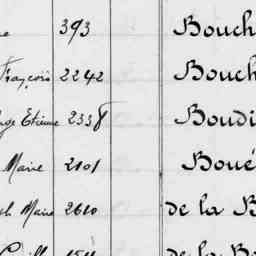 393 Bouch
François 2242 Bouch
Etienne 2338 Boudi
Marie 2101 Boué
Marie 2610 de la B
de la Bo